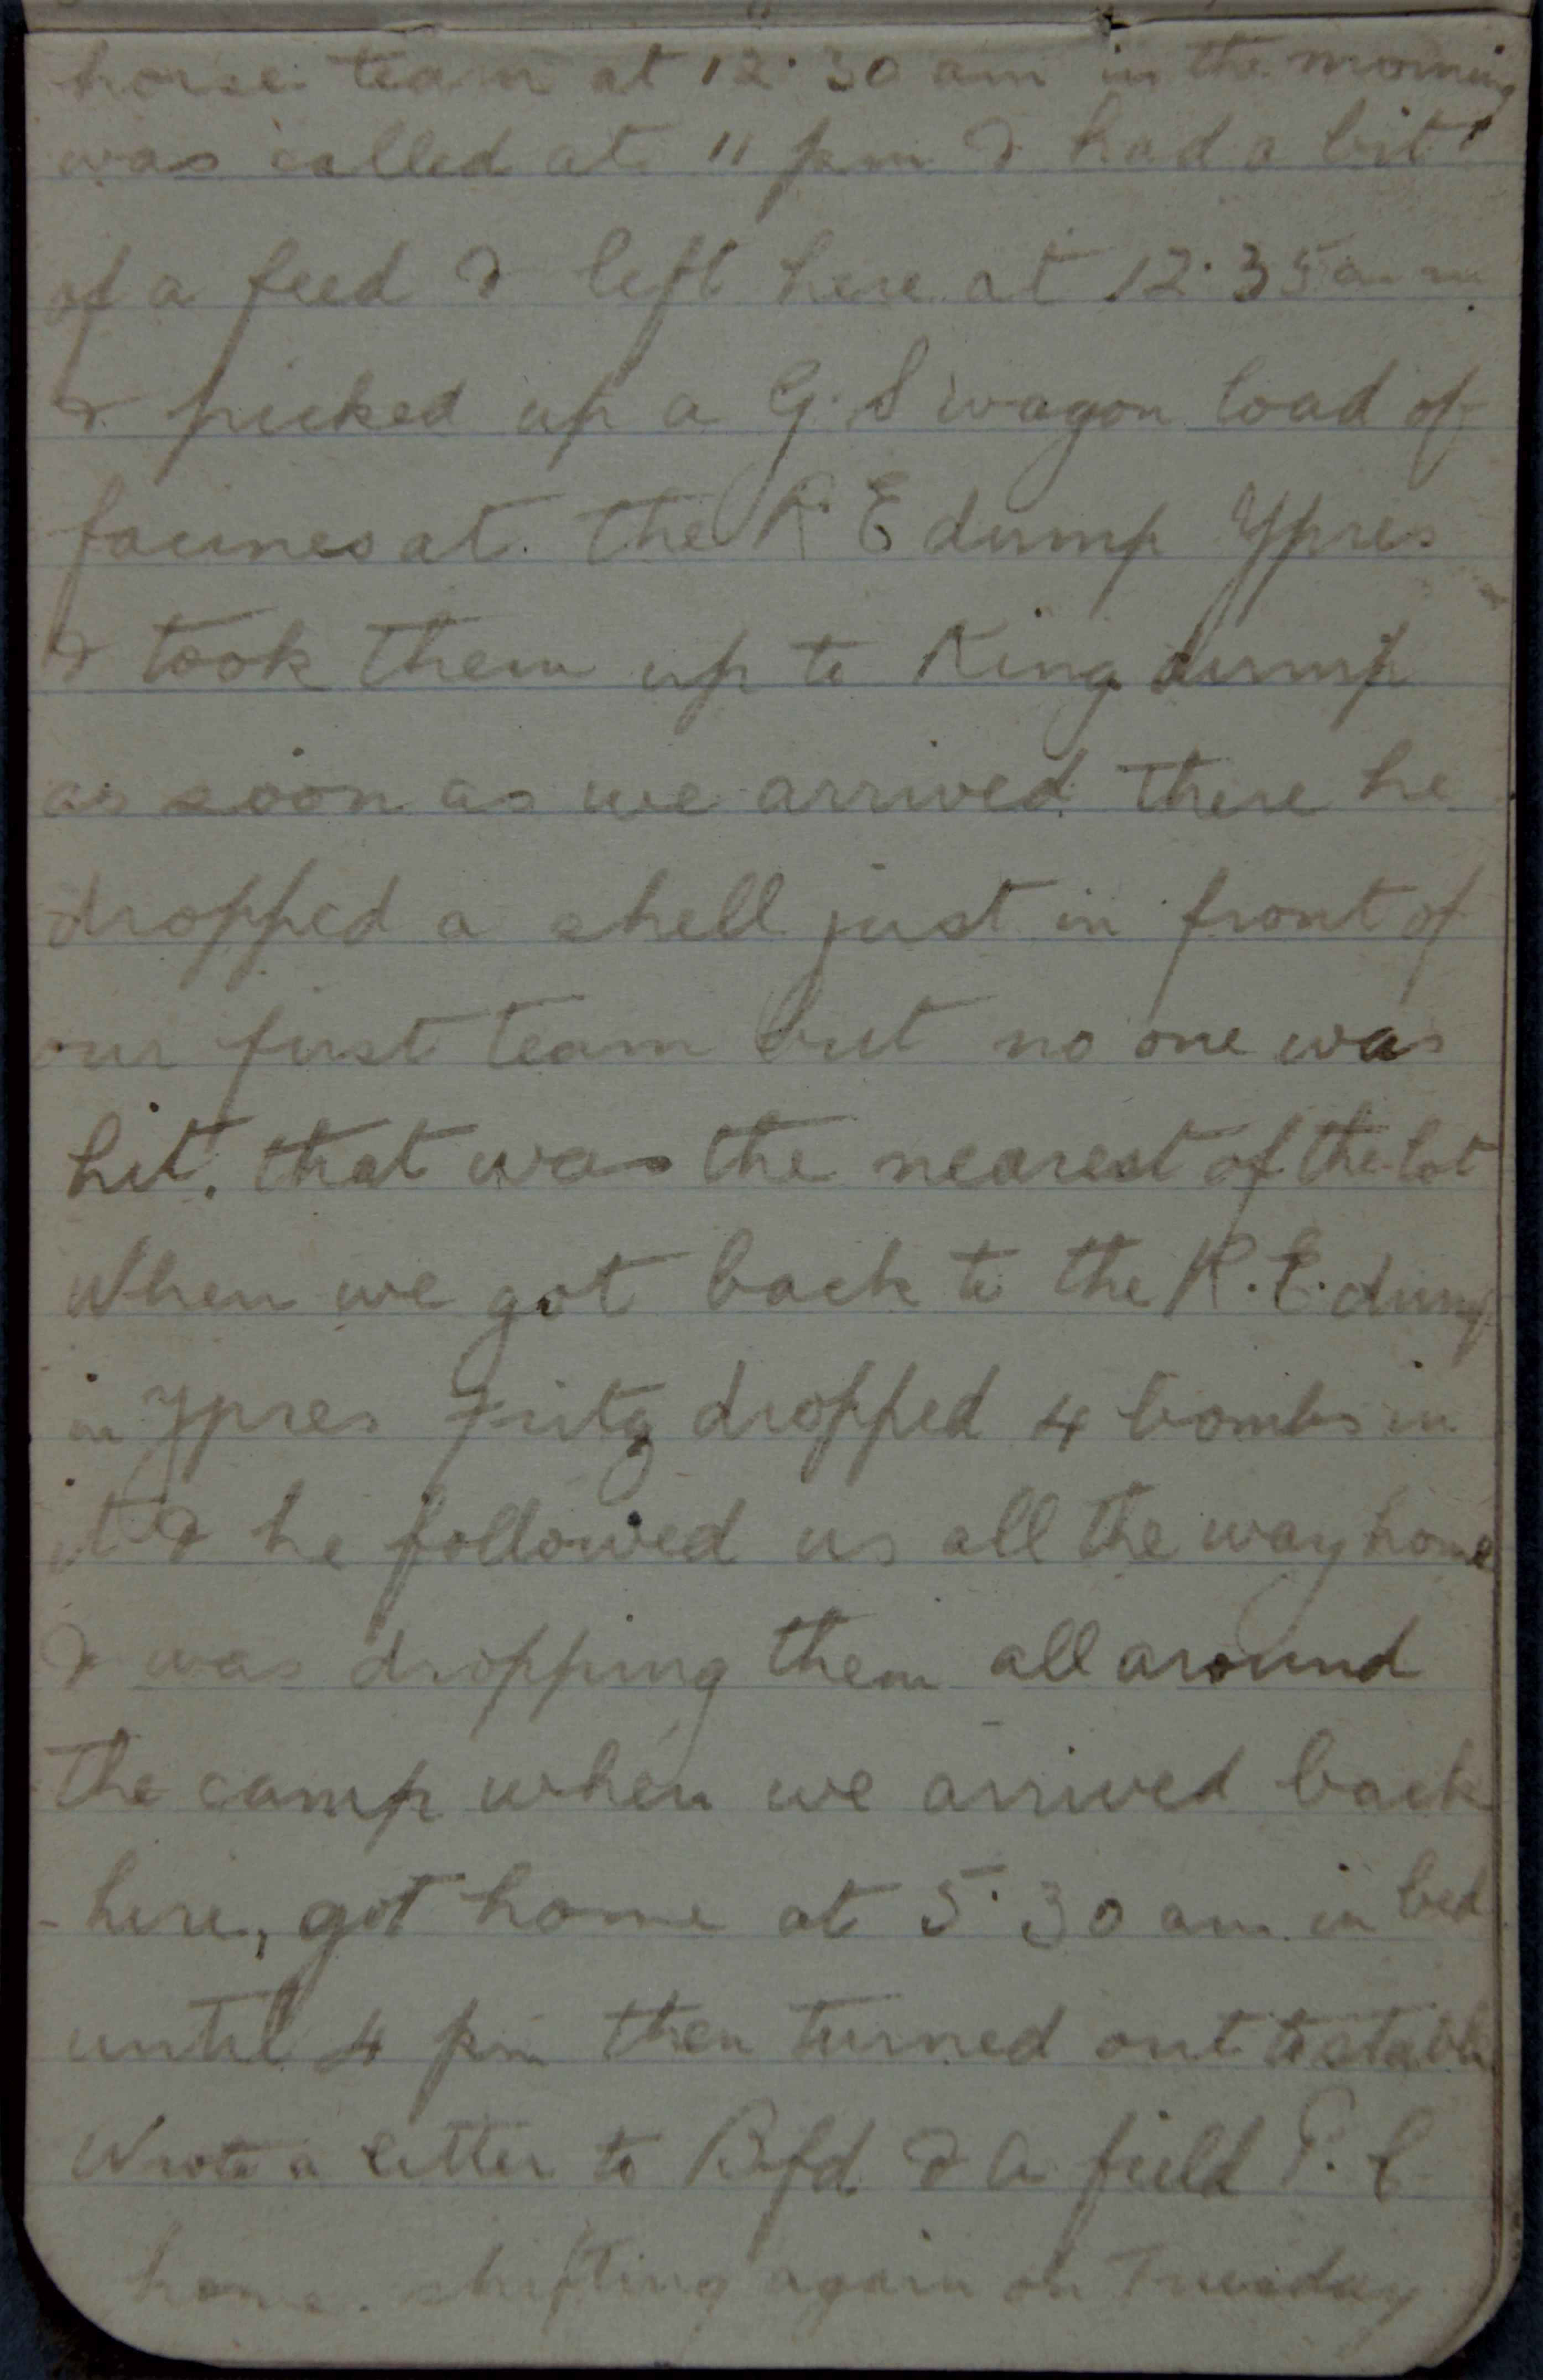 horse team at 12.30 am in the morning
was called at 11 pm & had a bit
of a feed & left here at 12.35 am
& picked up a G.S wagon load of
facines at the R.E dump Ypres
& took them up to King dump
as soon as we arrived there he
dropped a shell just in front of
our first team but no one was
hit. that was the nearest of the lot
When we got back to the R.E. dump
in Ypres Fritz dropped 4 bombs in
it & he followed us all the way home
& was dropping them all around
the camp when we arrived back
here, got home at 5.30 am in bed
until 4 pm then turned out to stables
Wrote a letter to Bfd & a field P.C
home. shifting again on Tuesday